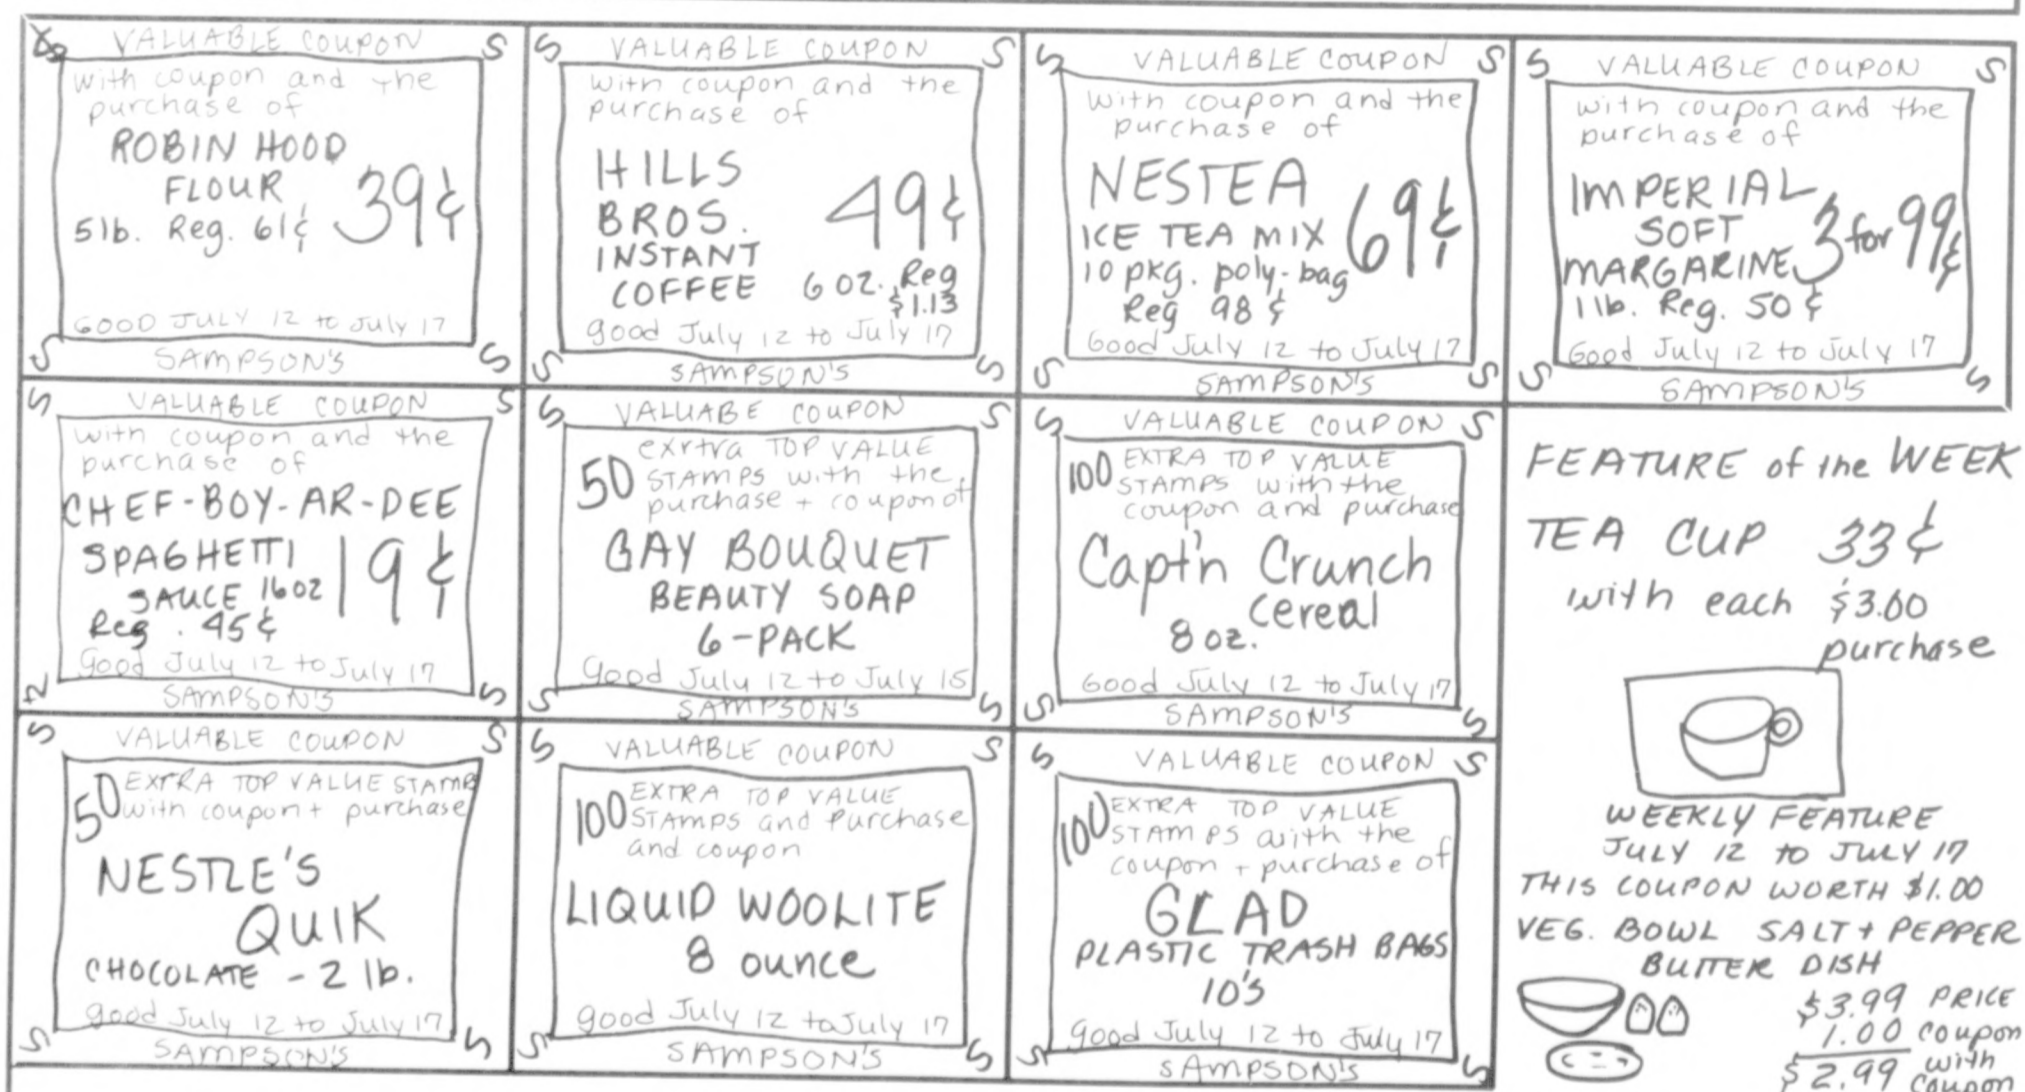 VALUABLE COUPON
with coupon and the
purchase of
ROBIN HOOD
FLOUR
39¢
5lb. Reg. 61¢
GOOD JULY 12 to July 17
SAMPSON'S
VALUABLE COUPON
with coupon and the
purchase of
HILLS
BROS.
49¢
INSTANT
COFFEE 6 oz. Reg
$1.13
good July 12 to July 17
SAMPSON'S
VALUABLE COUPON
with coupon and the
purchase of
NESTEA
69¢
ICE TEA MIX
10 pkg. poly-bag
Reg 98¢
Good July 12 to July 17
SAMPSON'S
VALUABLE COUPON
with coupon and the
purchase of
IMPERIAL
SOFT
MARGARINE 3 for 99¢
1lb. Reg. 50¢
Good July 12 to July 17
SAMPSON'S
VALUABLE COUPON
with coupon and the
purchase of
CHEF-BOY-AR-DEE
SPAGHETTI
19¢
SAUCE 16oz
Reg. 45¢
Good July 12 to July 17
SAMPSON'S
VALUABE COUPON
50 exrtva TOP VALUE
STAMPS with the
purchase + coupon of
GAY BOUQUET
BEAUTY SOAP
6-PACK
Good July 12 to July 15
SAMPSON'S
VALUABLE COUPON
100 EXTRA TOP VALUE
STAMPS with the
coupon and purchase
Capt'n Crunch
cereal
8 oz.
Good July 12 to July 17
SAMPSON'S
FEATURE of the WEEK
TEA CUP 33¢
with each $3.00
purchase
WEEKLY FEATURE
JULY 12 to JULY 17
THIS COUPON WORTH $1.00
VEG. BOWL SALT + PEPPER
BUTTER DISH
$3.99 PRICE
1.00 coupon
$2.99 with
coupon
VALUABLE COUPON
50 EXTRA TOP VALUE STAMPS
with coupon + purchase
NESTLE'S
QUIK
CHOCOLATE - 2 lb.
good July 12 to July 17
SAMPSON'S
VALUABLE COUPON
100 EXTRA TOP VALUE
STAMPS and Purchase
and coupon
LIQUID WOOLITE
8 ounce
good July 12 to July 17
SAMPSON'S
VALUABLE COUPON
100 EXTRA TOP VALUE
STAMPS with the
coupon + purchase of
GLAD
PLASTIC TRASH BAGS
10's
good July 12 to July 17
SAMPSON'S